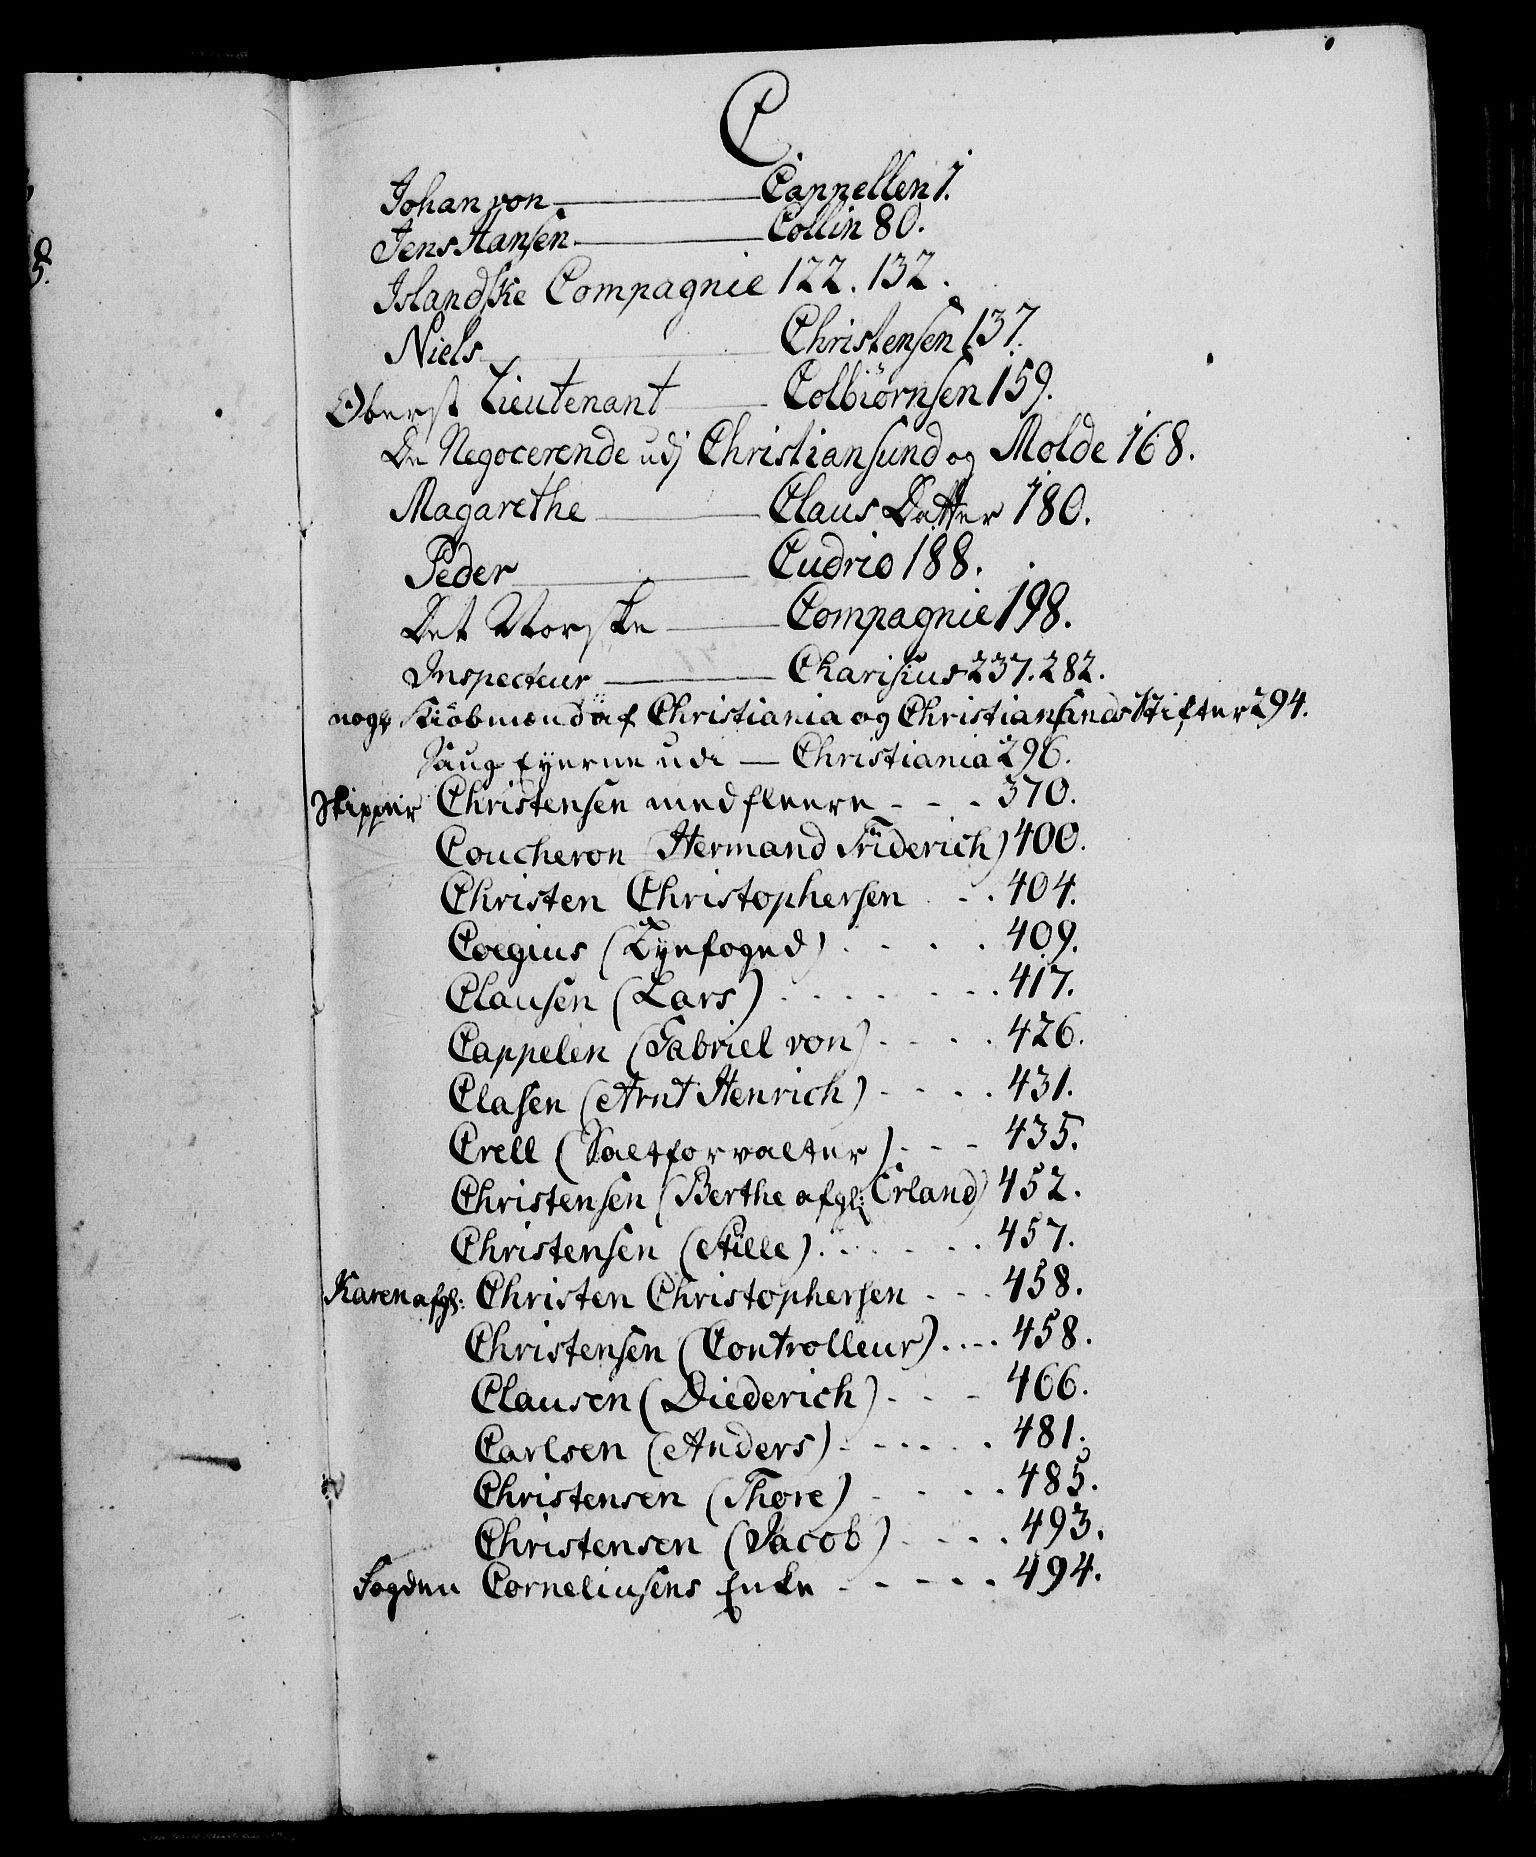 C
Johan von Cappellen 1.
Jens Hansen Collin 80.
Islandske Compagnie 122. 132.
Niels Christensen 137.
Oberst Lieutenant Colbiörnsen 159.
De Negocerende udj Christiansund og Molde 168.
Magarethe Claus Datter 180.
Peder Cudrio 188.
Det Norske Compagnie 198.
Inspecteur Charisius 237. 282.
nogle Kiöbmænd af Christiania og Christiansands Stifter 294.
Saug Eyerne udi Christiania 296.
Skipper Christensen med fleere 370.
Coucheron (Hermand Friderich) 400.
Christen Christophersen 404.
Coegius (Byefoged) 409.
Clausen (Lars) 417.
Cappelen (Gabriel von) 426.
Clasen (Arnt Henrich) 431.
Crell (Saltforvalter) 435.
Christensen (Berthe afgl: Erland) 452.
Christensen (Stille) 457.
Karen afgl: Christen Christophersen 458.
Christensen (Controlleur) 458.
Clausen (Diederich) 466.
Carlsen (Anders) 481.
Christensen (Thore) 485.
Christensen (Jacob) 493.
Fogden Corneliusens Enke 494.
8.